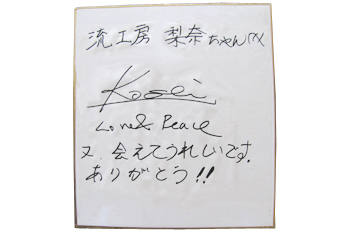 流工房 梨奈ちゃん江
Koshi
Love & Peace
又、会えてうれしいです。
ありがとう!!